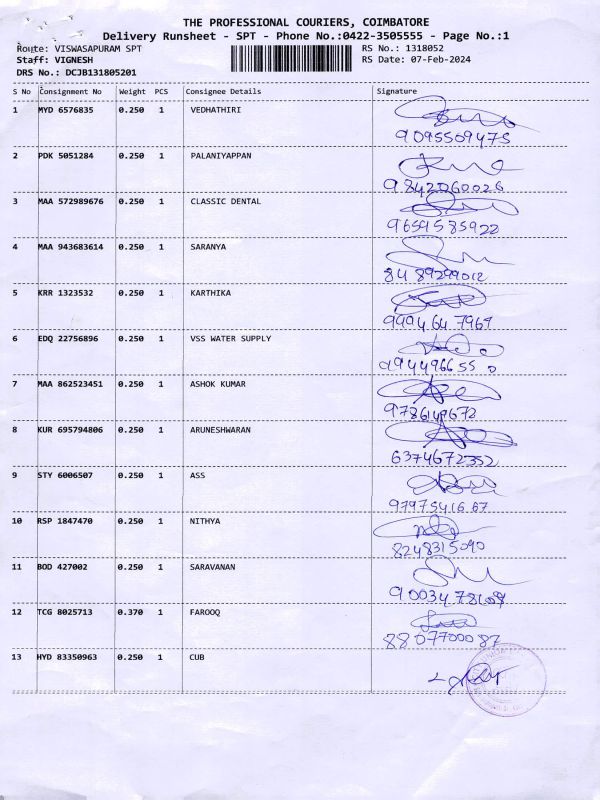 THE PROFESSIONAL COURIERS, COIMBATORE
Delivery Runsheet - SPT - Phone No.:0422-3505555 - Page No.:1
Route: VISWASAPURAM SPT RS No.: 1318052
Staff: VIGNESH RS Date: 07-Feb-2024
DRS No.: DCJB131805201
S No Consignment No Weight PCS Consignee Details Signature
1 MYD 6576835 0.250 1 VEDHATHIRI
9095509475
2 PDK 5051284 0.250 1 PALANIYAPPAN
9842060026
3 MAA 572989676 0.250 1 CLASSIC DENTAL
9659585922
4 MAA 943683614 0.250 1 SARANYA
8489299012
5 KRR 1323532 0.250 1 KARTHIKA
9994647967
6 EDQ 22756896 0.250 1 VSS WATER SUPPLY
9944966550
7 MAA 862523451 0.250 1 ASHOK KUMAR
9786149672
8 KUR 695794806 0.250 1 ARUNESHWARAN
6374672352
9 STY 6006507 0.250 1 ASS
9797541667
10 RSP 1847470 0.250 1 NITHYA
8248315090
11 BOD 427002 0.250 1 SARAVANAN
12 TCG 8025713 0.370 1 FAROOQ
8807700087
13 HYD 83350963 0.250 1 CUB